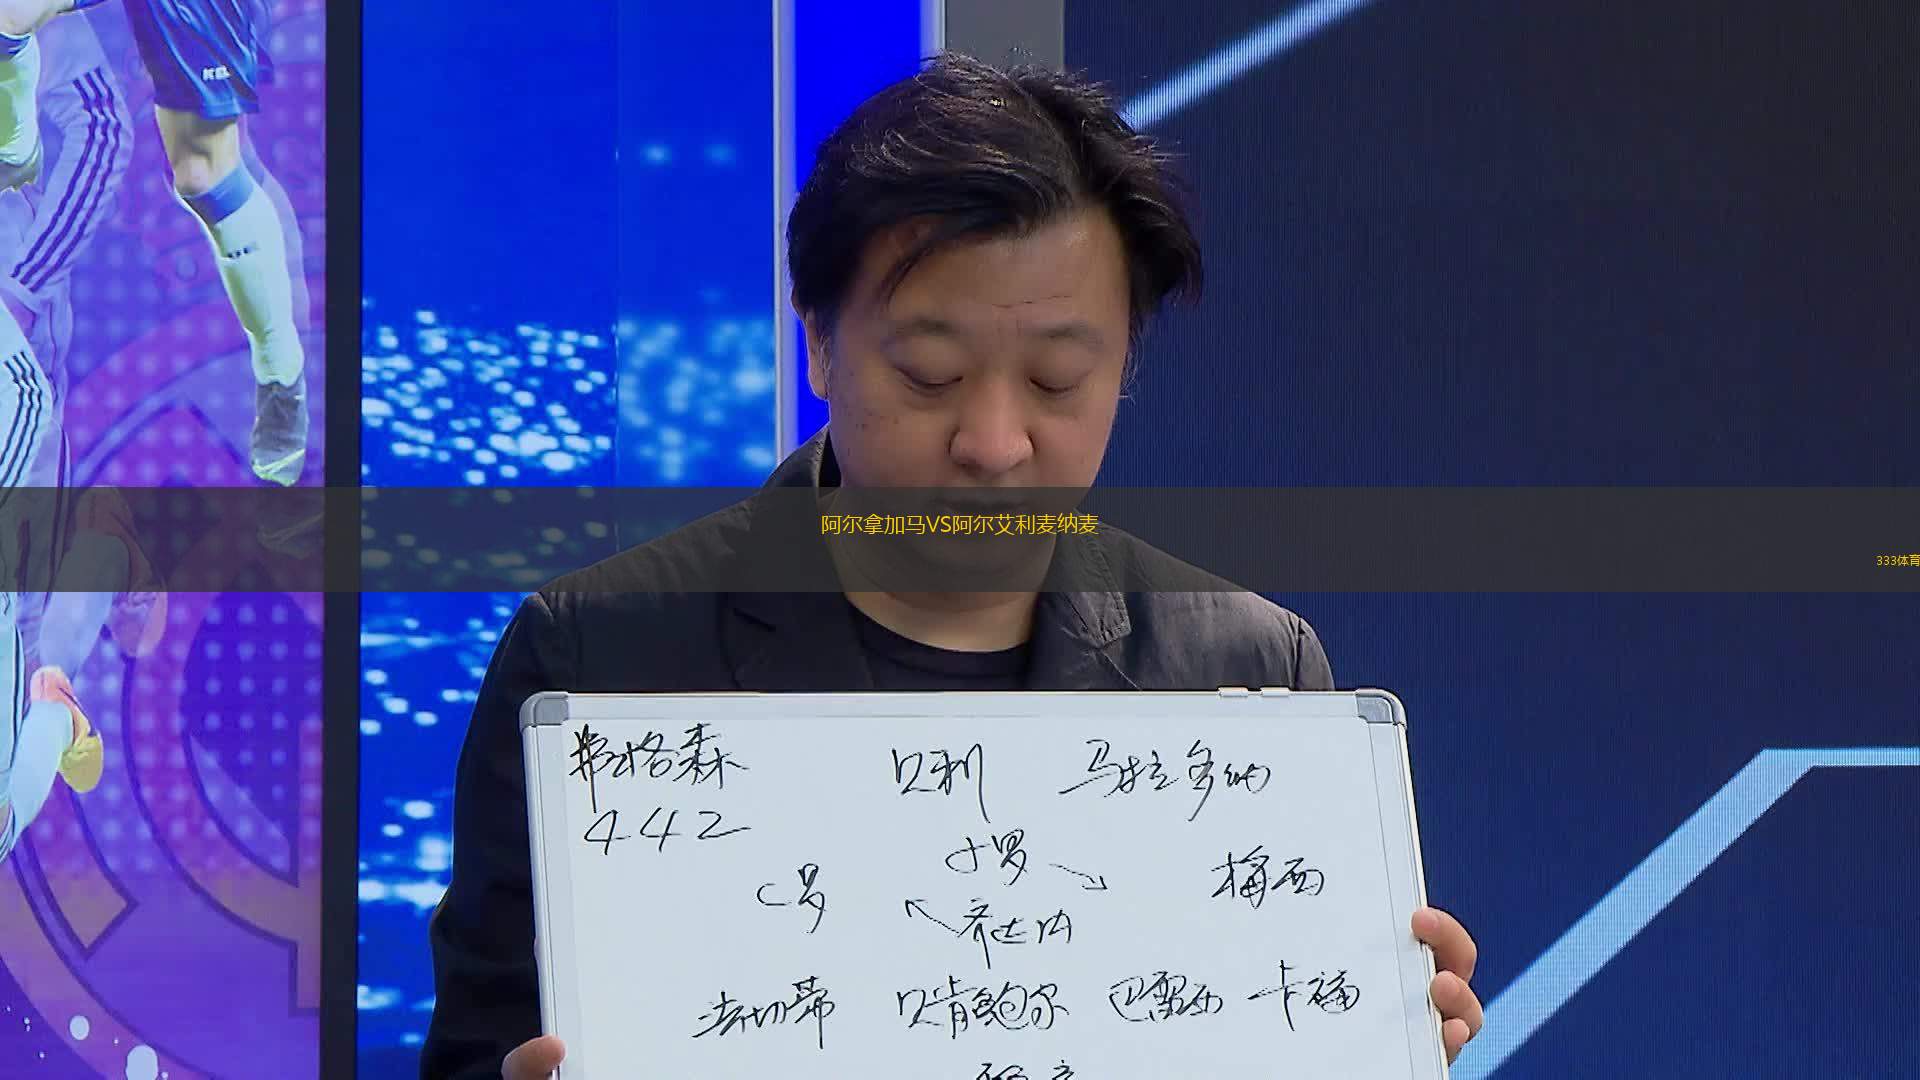 阿尔拿加马VS阿尔艾利麦纳麦
333体育
弗格森 贝利 马拉多纳
442
小罗
C罗 梅西
齐达内
法切蒂 贝肯鲍尔 巴雷西 卡福